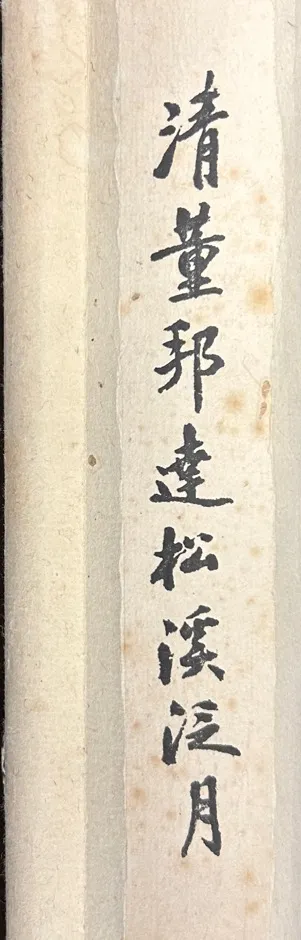 清董邦達松溪泛月